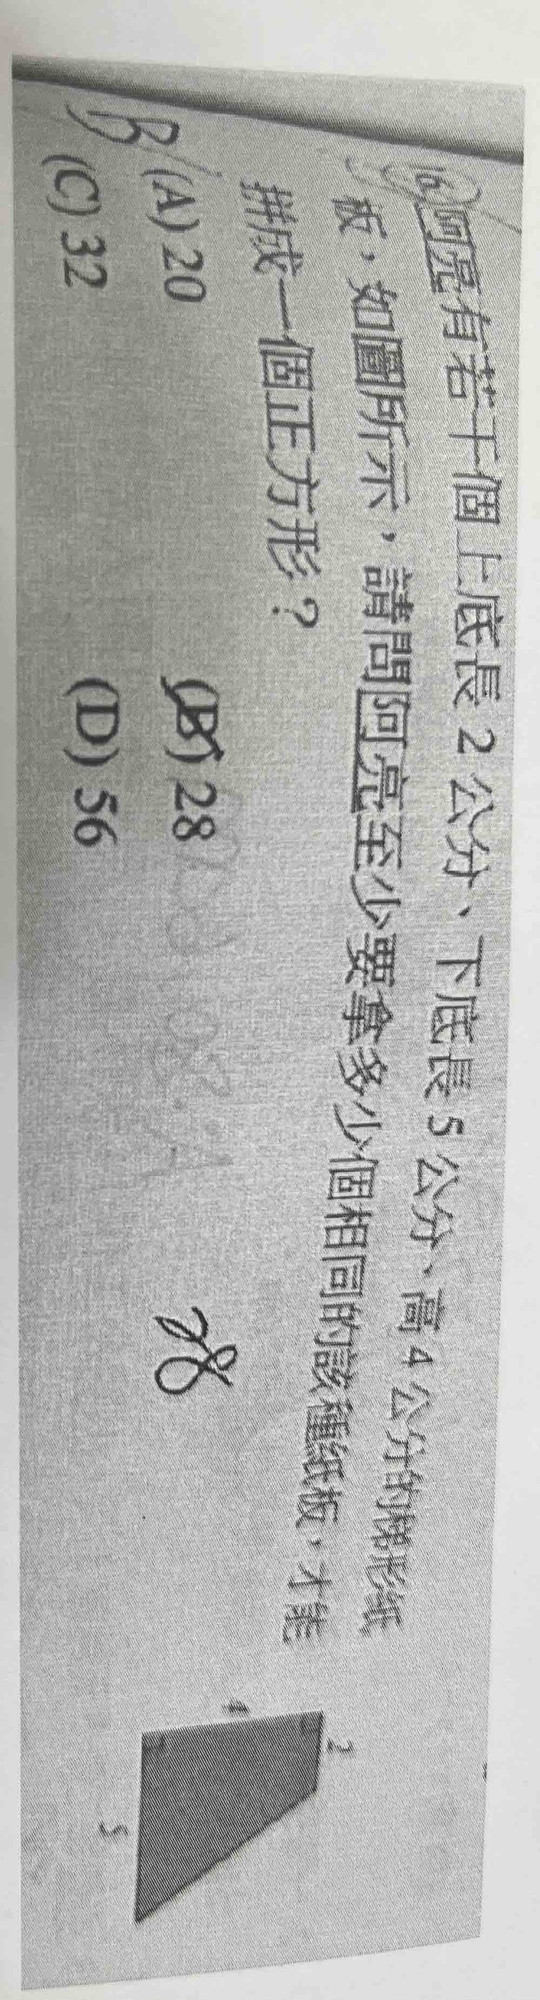 16. 阿亮有若干個上底長 2 公分、下底長 5 公分、高 4 公分的梯形紙
板，如圖所示，請問阿亮至少要拿多少個相同的該種紙板，才能
拼成一個正方形？
B (A) 20 (B) 28
(C) 32 (D) 56
28
2
4
5